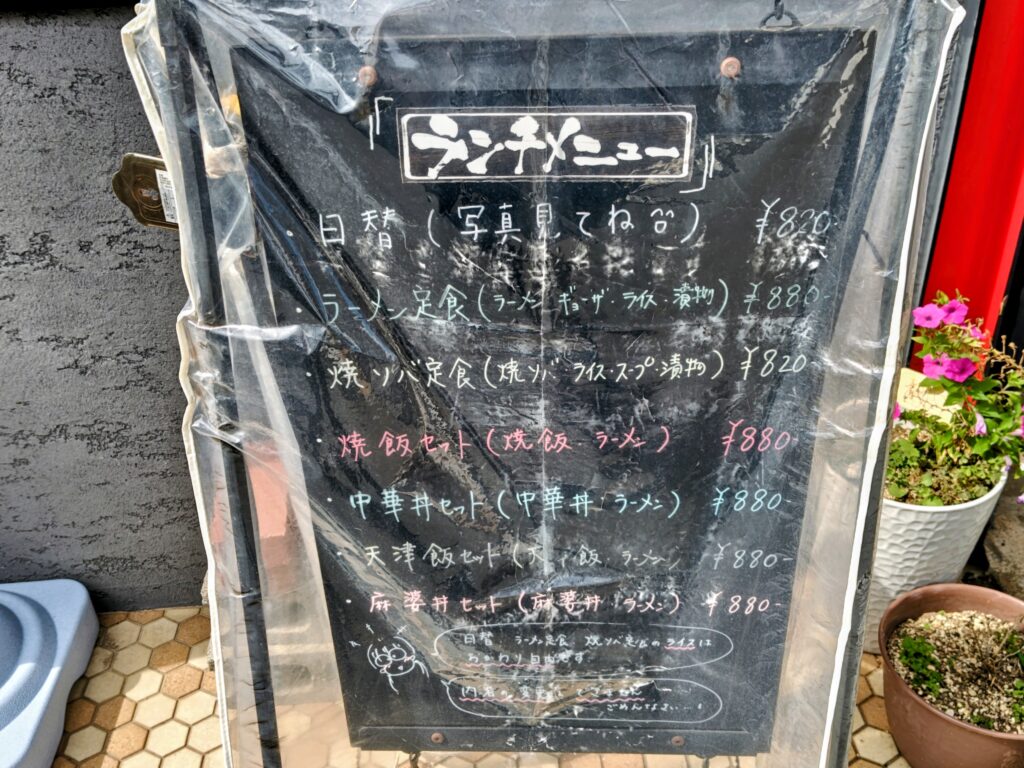 『ランチメニュー』
日替(写真見てね) ¥820-
・ラーメン定食(ラーメン・ギョーザ・ライス・漬物) ¥880-
・焼ソバ定食(焼ソバ・ライス・スープ・漬物) ¥820
・焼飯セット(焼飯・ラーメン) ¥880-
・中華丼セット(中華丼・ラーメン) ¥880-
・天津飯セット(天 飯・ラーメン) ¥880-
・麻婆丼セット(麻婆丼・ラーメン) ¥880-
日替 ラーメン定食 焼ソバ定食のライスは
おかわり自由です
内容の変更は できません
ごめんなさい…